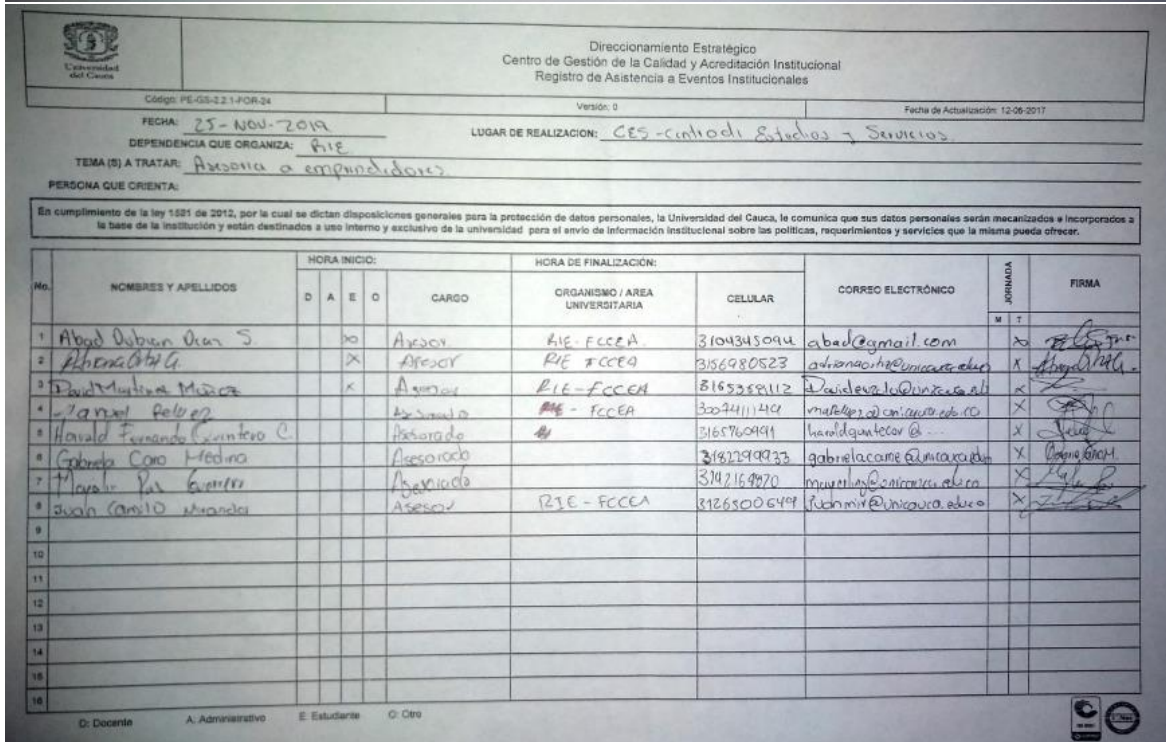 Universidad
del Cauca
Direccionamiento Estratégico
Centro de Gestión de la Calidad y Acreditación Institucional
Registro de Asistencia a Eventos Institucionales
Código: PE-GS-2.2.1-FOR-24 Versión: 0 Fecha de Actualización: 12-06-2017
FECHA: 25-NOV-2019 LUGAR DE REALIZACION: CES-Centro de Estudios y Servicios
DEPENDENCIA QUE ORGANIZA: RIE
TEMA (S) A TRATAR: Asesoria a emprendedores
PERSONA QUE ORIENTA:
En cumplimiento de la ley 1581 de 2012, por la cual se dictan disposiciones generales para la protección de datos personales, la Universidad del Cauca, le comunica que sus datos personales serán mecanizados e incorporados a
la base de la institución y están destinados a uso interno y exclusivo de la universidad para el envío de información institucional sobre las políticas, requerimientos y servicios que la misma pueda ofrecer.
HORA INICIO: HORA DE FINALIZACIÓN:
No. NOMBRES Y APELLIDOS D A E O CARGO ORGANISMO / AREA UNIVERSITARIA CELULAR CORREO ELECTRÓNICO JORNADA M T FIRMA
1 Abad Dubian Diaz S. X Asesor RIE-FCCEA 3104345094 abad@gmail.com X
2 X Asesor RIE FCCEA 3156980523 X
3 David Martinez Muñoz X Asesor RIE-FCCEA X
4 Asesorado RIE - FCCEA X
5 Harold Fernando Quintero C. Asesorado 3165760991 X
6 Gabriela Caro Medina Asesorado 3182299933 X
7 Asesorado X
8 Juan Camilo Miranda Asesor RIE-FCCEA 3126500649 X
9
10
11
12
13
14
15
16
D: Docente A: Administrativo E: Estudiante O: Otro